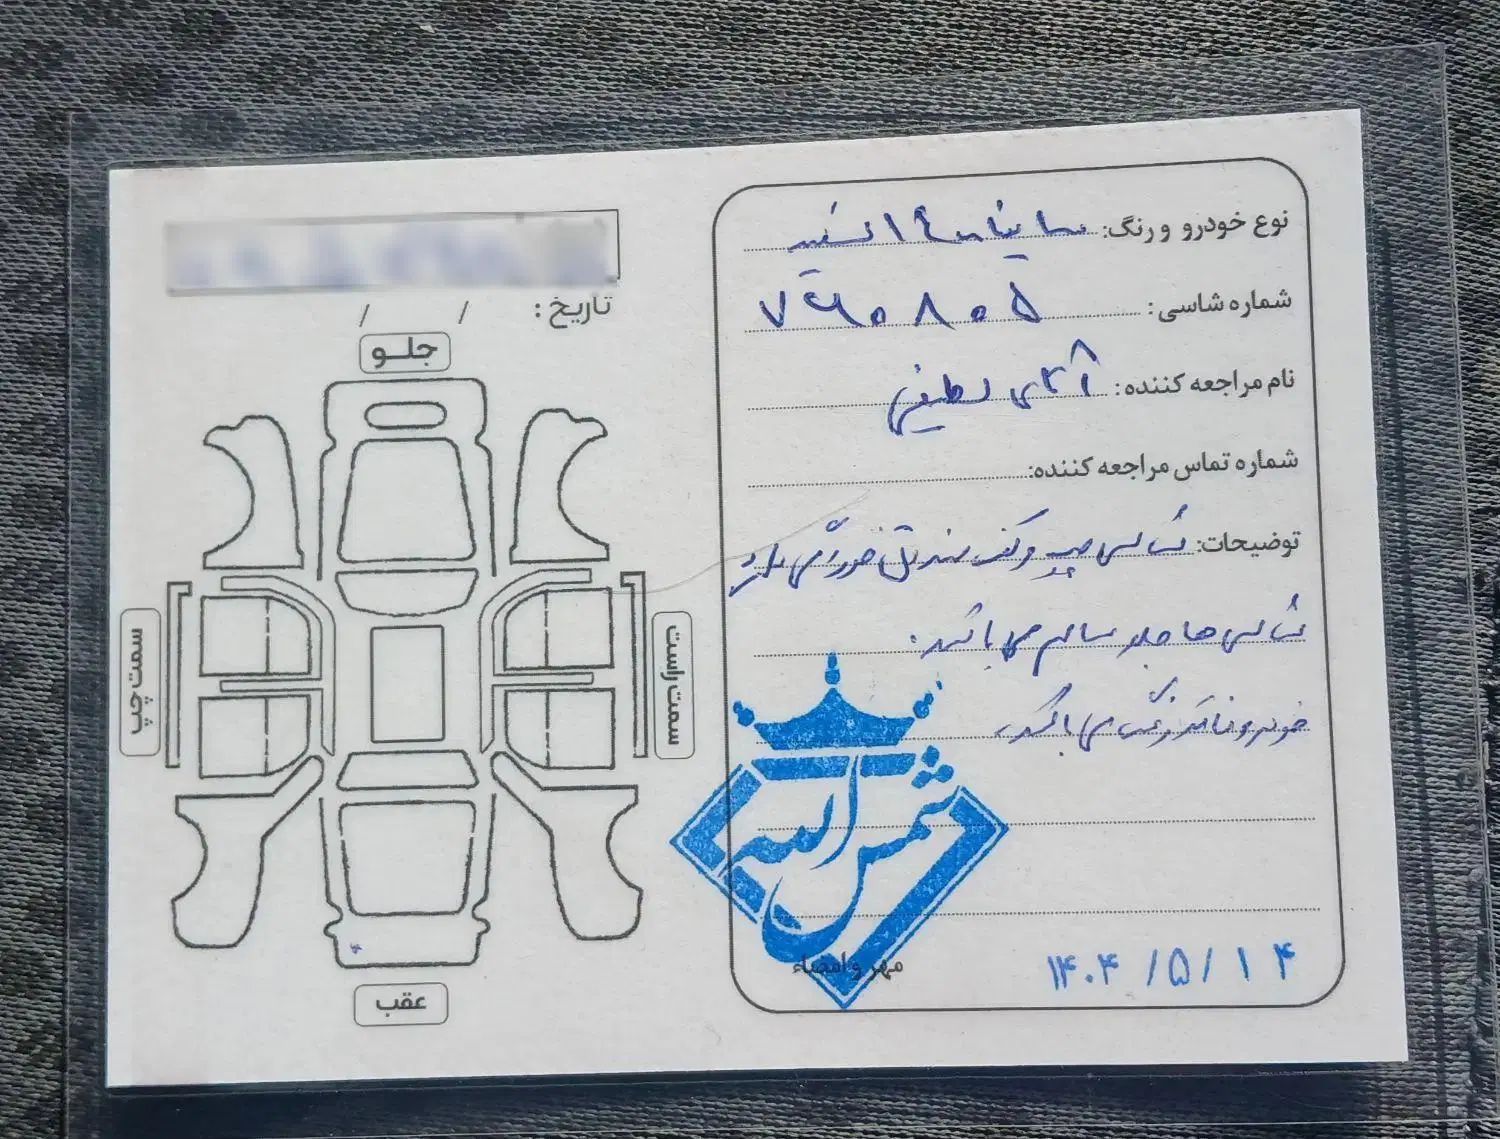 نوع خودرو و رنگ: ساینا سفید
شماره شاسی: ۷۶۰۸۰۵
نام مراجعه کننده: آقای لطیفی
شماره تماس مراجعه کننده:
توضیحات: شاسی چپ و کف صندوق خوردگی دارد
شاسی ها جلو سالم می باشد.
خودرو فاقد رنگ می باشد.
شمس
مهر و امضاء
۱۴۰۴/۵/۱۴
تاریخ: / /
جلو
سمت چپ
سمت راست
عقب